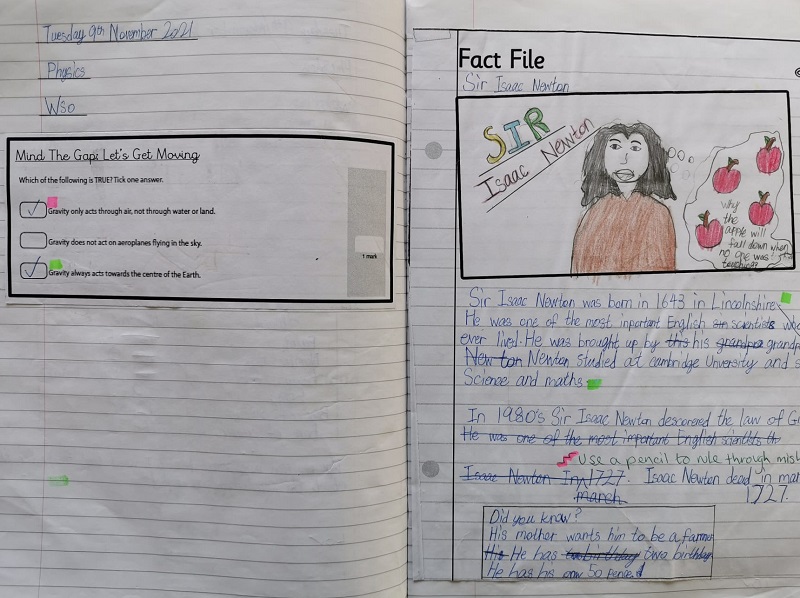 Tuesday 9th November 2021
Physics
Wso
Mind The Gap: Let's Get Moving
Which of the following is TRUE? Tick one answer.
Gravity only acts through air, not through water or land.
Gravity does not act on aeroplanes flying in the sky.
1 mark
Gravity always acts towards the centre of the Earth.
Fact File
Sir Isaac Newton
SIR
Isaac Newton
why
the
apple will
fall down when
no one was
Sir Isaac Newton was born in 1643 in Lincolnshire.
He was one of the most inportant English sin scientists who
ever lived. He was brought up by this his grandpea grandp
New ton Newton studied at cambridge University and s
Science and maths
In 1980's Sir Isaac Newton descovered the law of G
He was one of the most important English scientists th
Use a pencil to rule through mist
Isaac Newton In 1727. Isaac Newton dead in mar
March 1727.
Did you know?
His mother wants him to be a farmer
His He has two birthday
He has his 50 pence